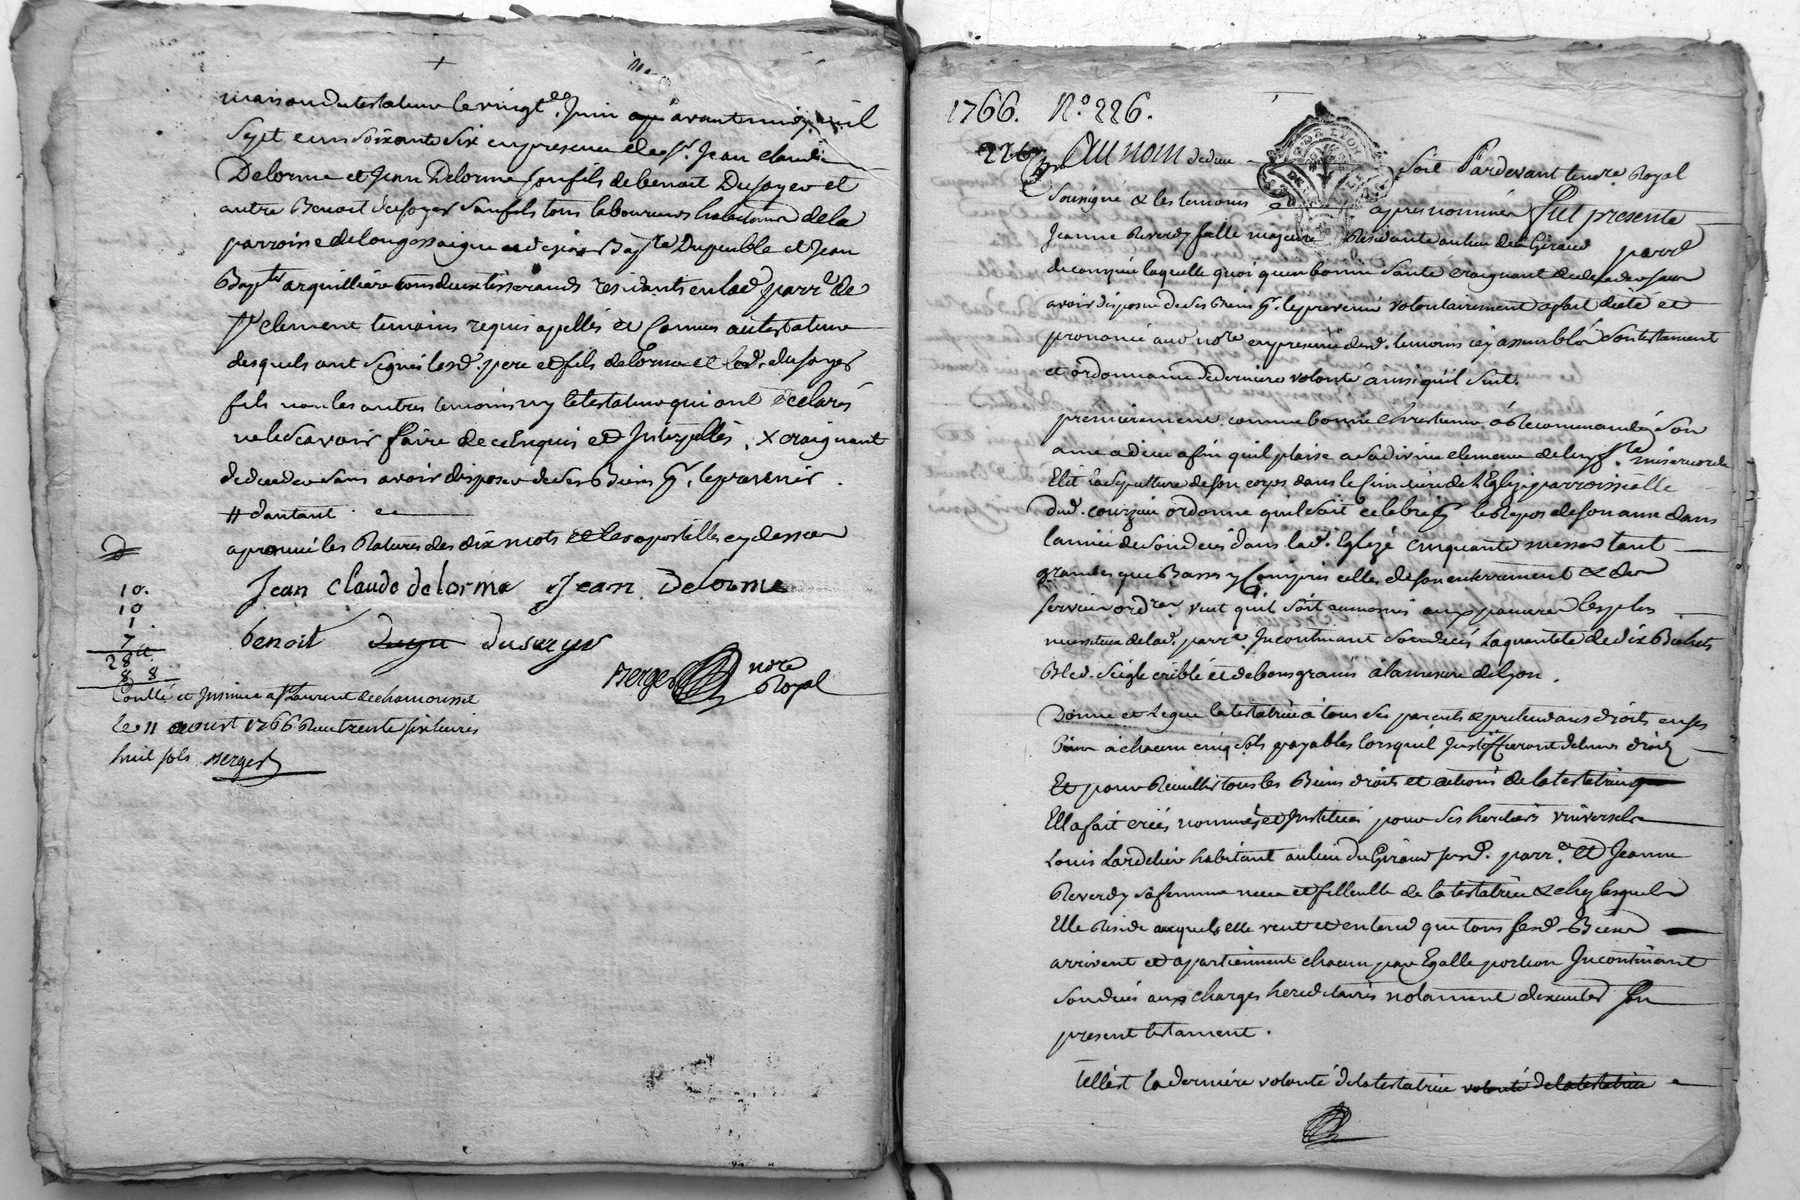 maison du testateur le vingt Juin avant midy mil
Sept cens soixante Six en presence de Sr. Jean claude
Delorme et Jean Delorme son fils de benoit Dusoyer et
autre Benoit dusoyer son fils tous laboureurs habitans de la
parroisse de longessaigne et de Bapte. Dupeuble et Jean
Bapte. arquilliere tous deux tisserands residants en lad. parre. de
St. clement temoins requis appellés et Connus au testateur
desquels ont signés lesd. pere et fils delorme et led. dusoyer
fils non les autres temoins ny le testateur qui ont declarés
ne le scavoir faire de ce Enquis et Interpellés. x craignant
de deceder sans avoir disposer de ses Biens pr. le prevenir.
# d'autant
aprouvé les Ratures des dix mots et les apostilles cy dessus
10.
10
1.
7
28 #
8 8
Jean Claude delorme Jean Delorme
benoit dusoyer
Berger nore Royal
Conllé et Insinué a St Laurent de chamousset
le 11 aoust 1766 Reçu trente six livres
huit sols Berger
1766. No. 226.
226 Au nom de dieu Soit Pardevant le nore. Royal
Soussigné & les temoins apres nommés fut presente
Jeanne Reverdy fille majeure Residante au lieu du Giraud parre.
de courzieu laquelle quoi qu'en bonne santé craignant de deceder sans
avoir disposer de ses Biens pr. le prevenir volontairement a fait dicté et
prononcé aud. nore. en presence desd. temoins icy assemblés son testament
et ordonnance de derniere volonté ainsi quil suit.
premierement comme bonne chrestienne a Recommandé son
ame a dieu afin quil plaise a sa divine clemence de luy fre. misericorde
Elit la sepulture de son corps dans le Cimetiere de l'Eglize parroissialle
dud. courzieu ordonne quil soit celebré pr. le Repos de son ame dans
l'année de son decés dans lad. Eglize cinquante messes tant
grandes que Basses y Compris celles de son enterrement & des
services ordres. veut quil soit aumonné aux pauvres les plus
necessiteux de lad. parre. Incontinant son decés la quantité de dix Bichets
Bled Seigle criblé et de bons grains a la mesure de Lyon.
Donne et Legue la testatrice a tous ses parents & pretendans droits en ses
Biens a chacun cinq sols payables lorsquil Justiffieront de leurs droits
Et pour Recueillir tous les Biens droits et actions de la testatrice
Ell a fait créés nommés et Institués pour ses herittiers universels
Louis Lardelier habitant au lieu du Giraud susd. parre. Et Jeanne
Reverdy sa femme niece et fillieulle de la testatrice & chez lesquels
Elle Reside auxquels elle veut et entend que tous sesd. Biens
arrivent et apartiennent chacun par Egalle portion Incontinant
son decés aux charges hereditaires notament d'executer son
present testament.
Tell'est la derniere volonté de la testatrice volonté de la testatrice